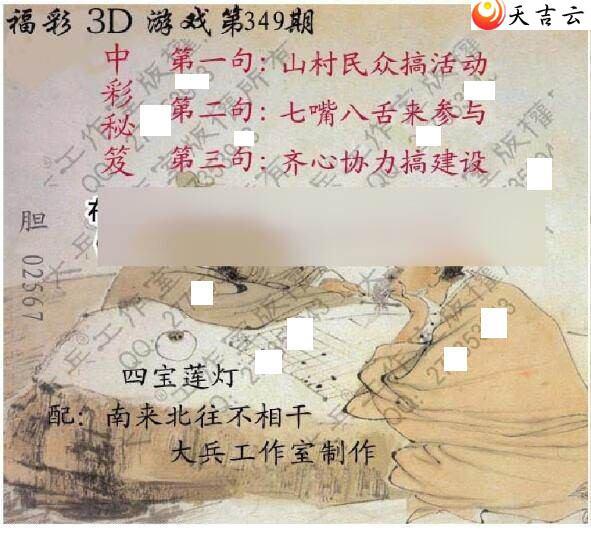 福彩 3D 游戏第349期
天吉云
中彩秘笈
第一句：山村民众搞活动
第二句：七嘴八舌来参与
第三句：齐心协力搞建设
胆 02567
四宝莲灯
配：南来北往不相干
大兵工作室制作